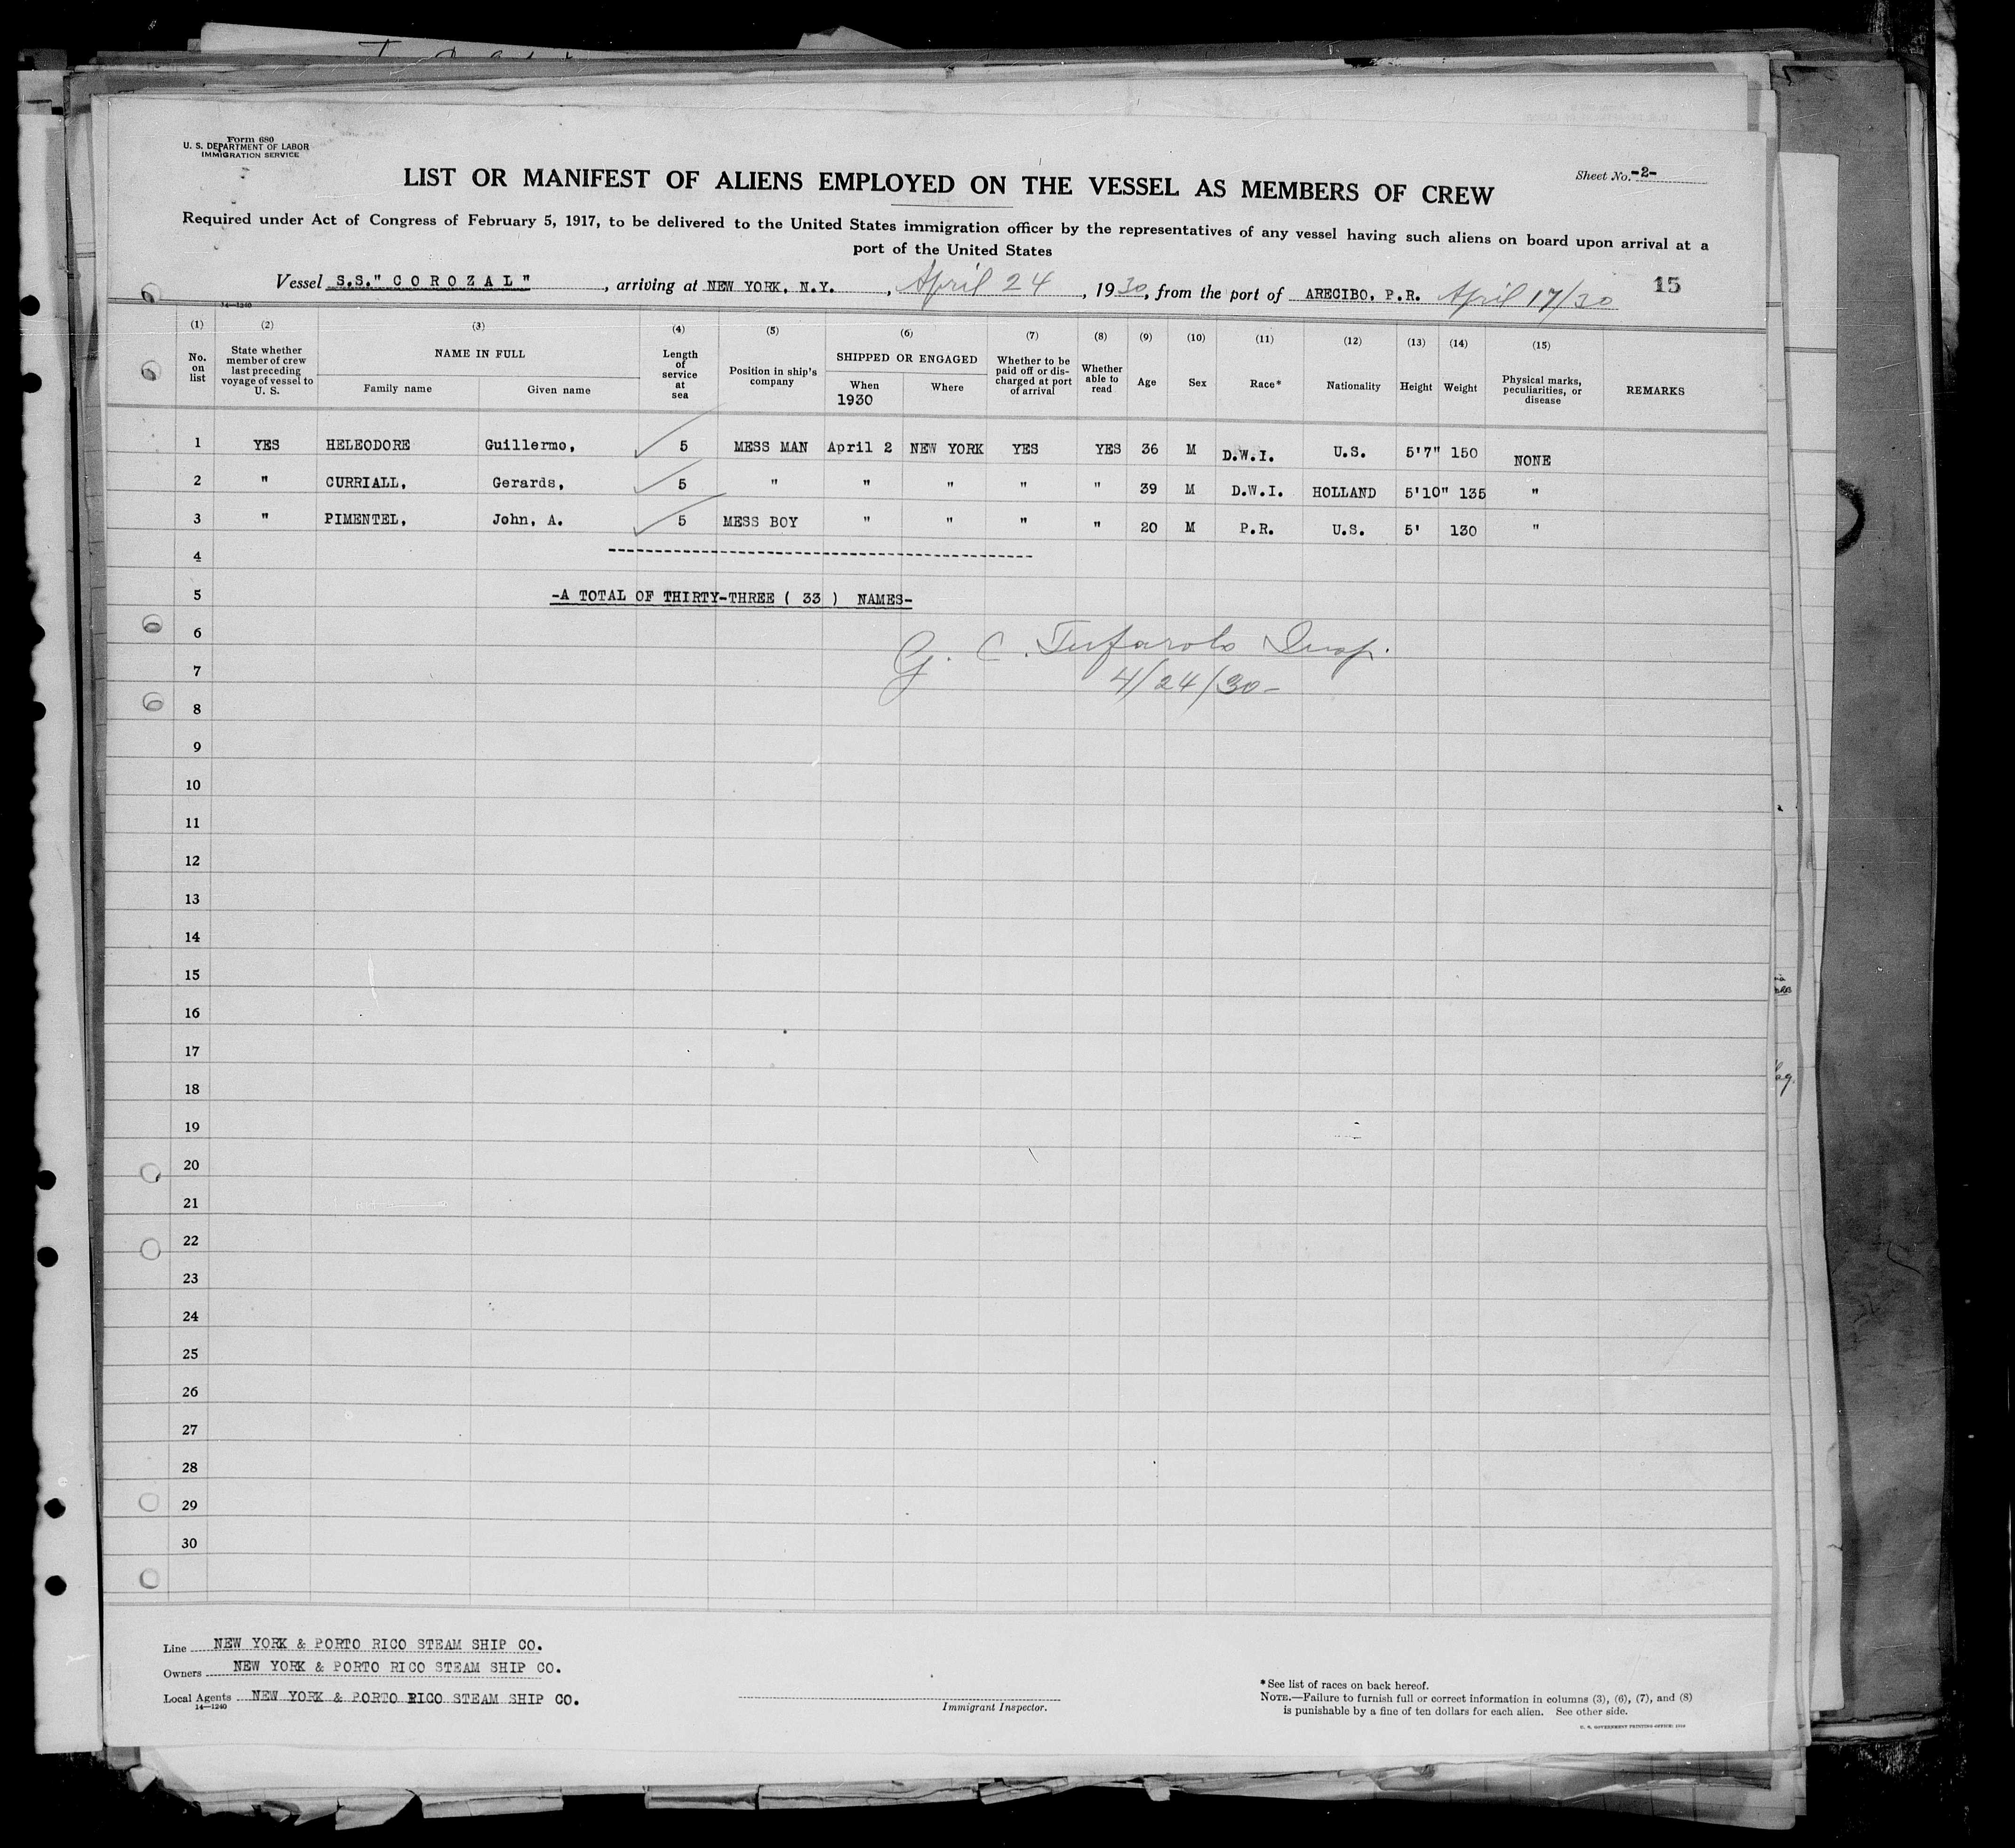 Form 680
U. S. DEPARTMENT OF LABOR
IMMIGRATION SERVICE
Sheet No. -2-
LIST OR MANIFEST OF ALIENS EMPLOYED ON THE VESSEL AS MEMBERS OF CREW
Required under Act of Congress of February 5, 1917, to be delivered to the United States immigration officer by the representatives of any vessel having such aliens on board upon arrival at a
port of the United States
Vessel S.S." C O R O Z A L ", arriving at NEW YORK, N.Y., April 24, 1930, from the port of ARECIBO, P.R. April 17/30 15
14—1240
(1) (2) (3) (4) (5) (6) (7) (8) (9) (10) (11) (12) (13) (14) (15)
No. on list State whether member of crew last preceding voyage of vessel to U. S. NAME IN FULL Family name Given name Length of service at sea Position in ship's company SHIPPED OR ENGAGED When 1930 Where Whether to be paid off or discharged at port of arrival Whether able to read Age Sex Race* Nationality Height Weight Physical marks, peculiarities, or disease REMARKS
1 YES HELEODORE Guillermo, 5 MESS MAN April 2 NEW YORK YES YES 36 M D.W.I. U.S. 5'7" 150 NONE
2 " CURRIALL, Gerards, 5 " " " " " 39 M D.W.I. HOLLAND 5'10" 135 "
3 " PIMENTEL, John, A. 5 MESS BOY " " " " 20 M P.R. U.S. 5' 130 "
4
5 -A TOTAL OF THIRTY-THREE ( 33 ) NAMES-
6 G. C. Insp.
7 4/24/30-
8
9
10
11
12
13
14
15
16
17
18
19
20
21
22
23
24
25
26
27
28
29
30
Line NEW YORK & PORTO RICO STEAM SHIP CO.
Owners NEW YORK & PORTO RICO STEAM SHIP CO.
Local Agents NEW YORK & PORTO RICO STEAM SHIP CO.
14—1240
Immigrant Inspector.
*See list of races on back hereof.
NOTE.—Failure to furnish full or correct information in columns (3), (6), (7), and (8)
is punishable by a fine of ten dollars for each alien. See other side.
U. S. GOVERNMENT PRINTING OFFICE